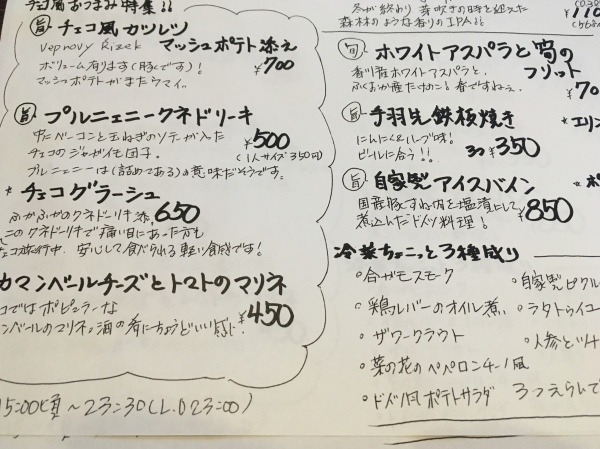 チェコ風おつまみ特集!!
旨 チェコ風カツレツ
Veprovy Rizek マッシュポテト添え
ボリューム有ります(豚です)!
マッシュポテトがまたウマイ。
¥700
旨 プルニェニークネドリーキ
中にベーコンと玉ねぎのソテーが入た
チェコのジャガイモ団子。
¥500
(1人サイズ350円)
プルニェニーは(詰めてある)の意味だそうです。
* チェコグラーシュ
ふかふかのクネドリーキ添 650
このクネドリーキで痛い目にあった方も
チェコ旅行中、安心して食べられる軽い食感です!
カマンベールチーズとトマトのマリネ
コではポピュラーな
ンベールのマリネ。酒の肴にちょうどいい感じ!
¥450
15:00頃〜23:30(L.O 23:00)
冬が終わり 芽吹きの時を迎えた
森林のような香りのIPA!!
旬 ホワイトアスパラと筍の
フリット
香川産ホワイトアスパラと、
ふくおか産たけのこ!春ですねぇ。
¥70
旨 手羽先鉄板焼き
にんにく&ハーブ味!
ビールに合う!!
3コ 350
旨 自家製アイスバイン
国産豚すね肉を塩漬にして
煮込んだドイツ料理!
¥850
冷菜ちょこっと3種盛り
・合ガモスモーク
・自家製ピクル
・鶏レバーのオイル煮
・ラタトゥイユ
・ザワークラウト
・人参とツナ
・菜の花のペペロンチーノ風
・ドイツ風ポテトサラダ
3つえらんで
* エリン
* ポ